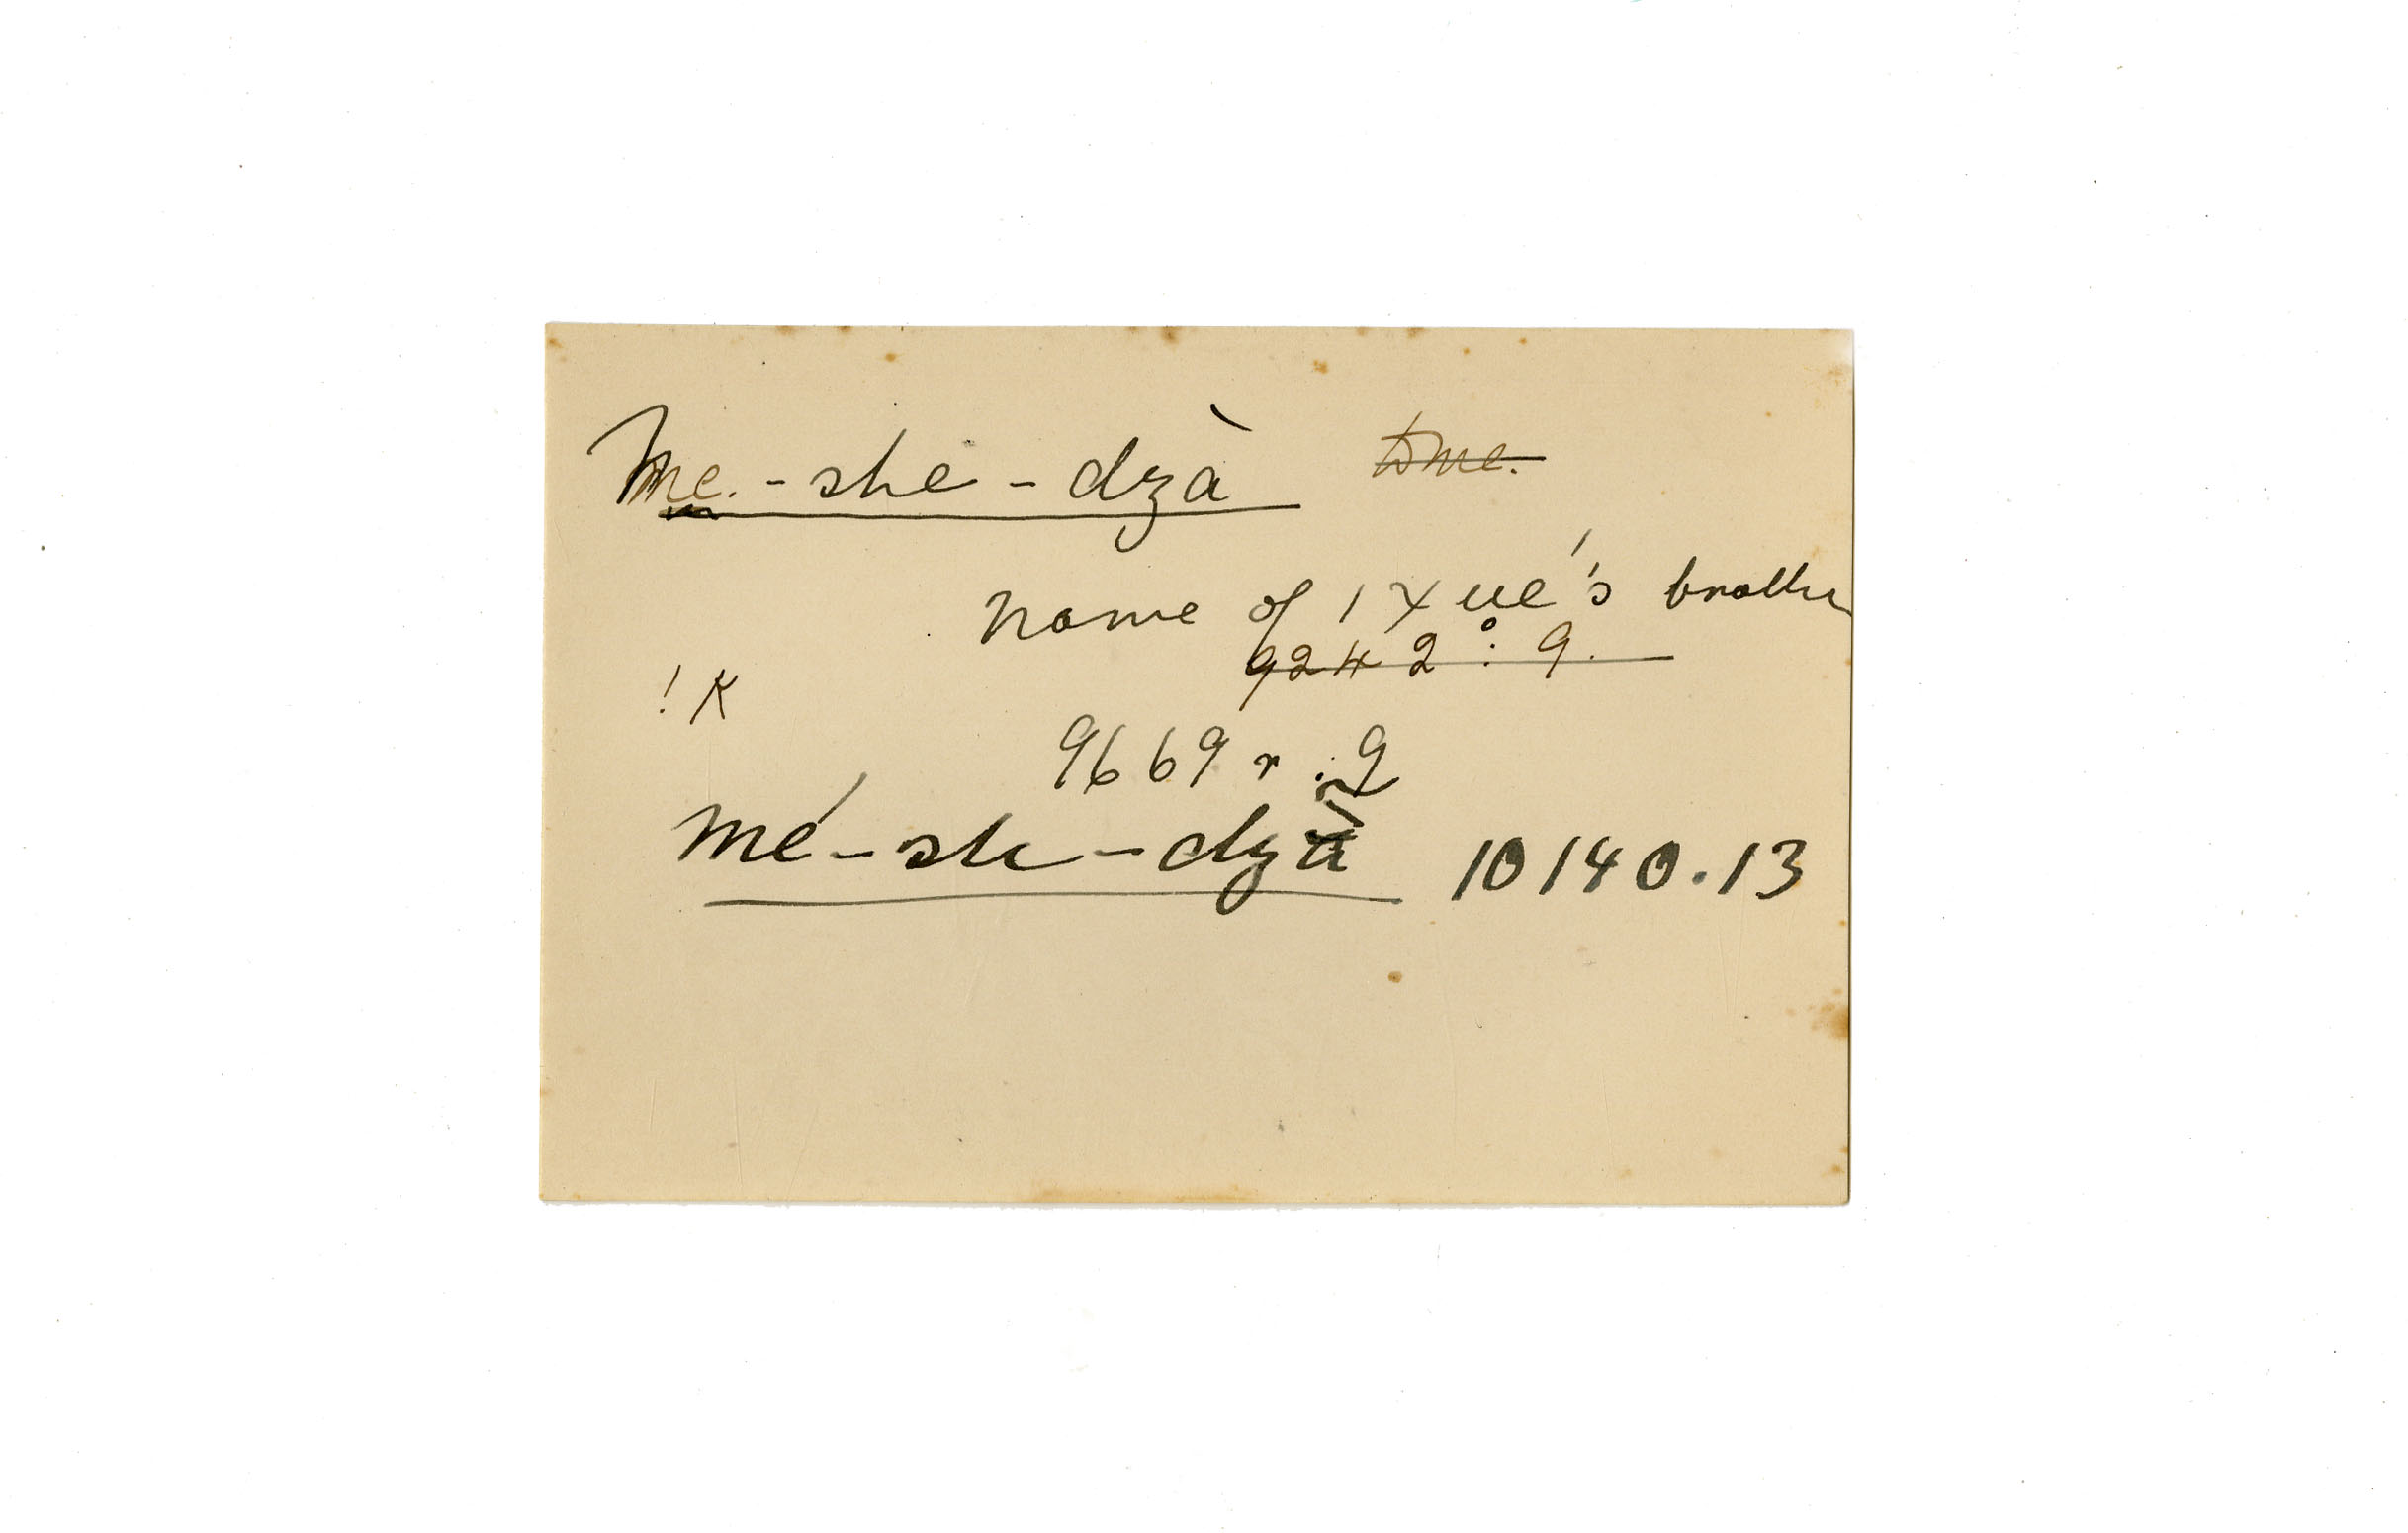 Me.-she-dzà to me.
name of !χué's brother
9242 : 9.
!K
9669 r. 9
mé-she-dzã̀ 10140.13